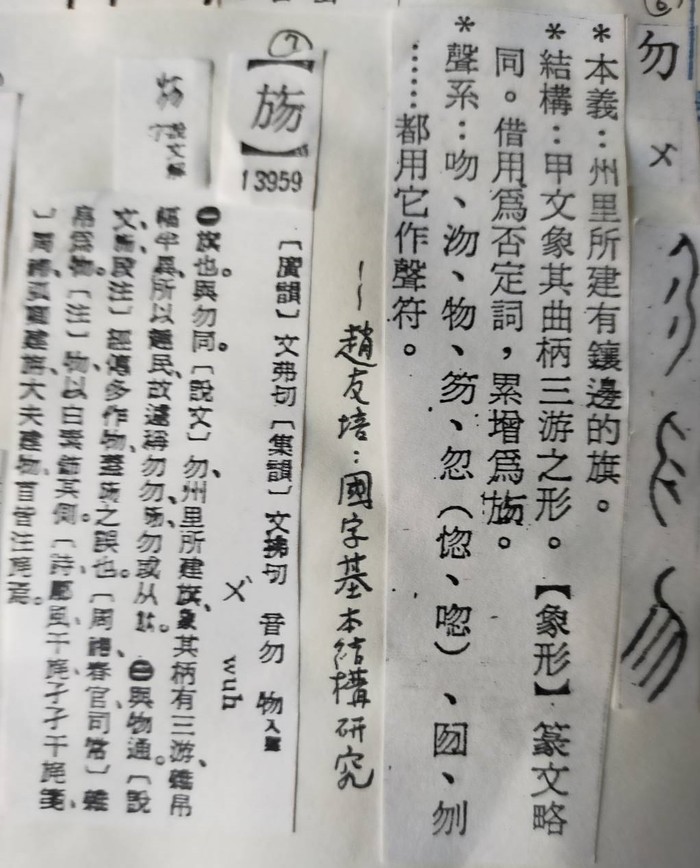 ⑥
勿
ㄨ
*本義：州里所建有鑲邊的旗。
*結構：甲文象其曲柄三游之形。【象形】篆文略
同。借用爲否定詞，累增爲㫚。
*聲系：吻、沕、物、笏、忽（惚、唿）、囫、刎
……都用它作聲符。
──趙友培：國字基本結構研究
⑦
【㫚】
13959
〔廣韻〕文弗切〔集韻〕文拂切　音勿　物入聲
ㄨˋ wuh
㊀旗也。與勿同。〔說文〕勿、州里所建旗、象其柄有三游、雜帛
幅半異、所以趣民、故遽稱勿勿、㫚、勿或从㫃。㊁與物通。〔說
文、㫚、段注〕經傳多作物、蓋㫚之誤也。〔周禮春官司常〕雜
帛爲物。〔注〕物、以白素飾其側。〔詩、鄘風、干旄〕孑孑干旄、箋、
〕周禮、孤卿建旜、大夫建物、首皆注旄焉。
說文解
字